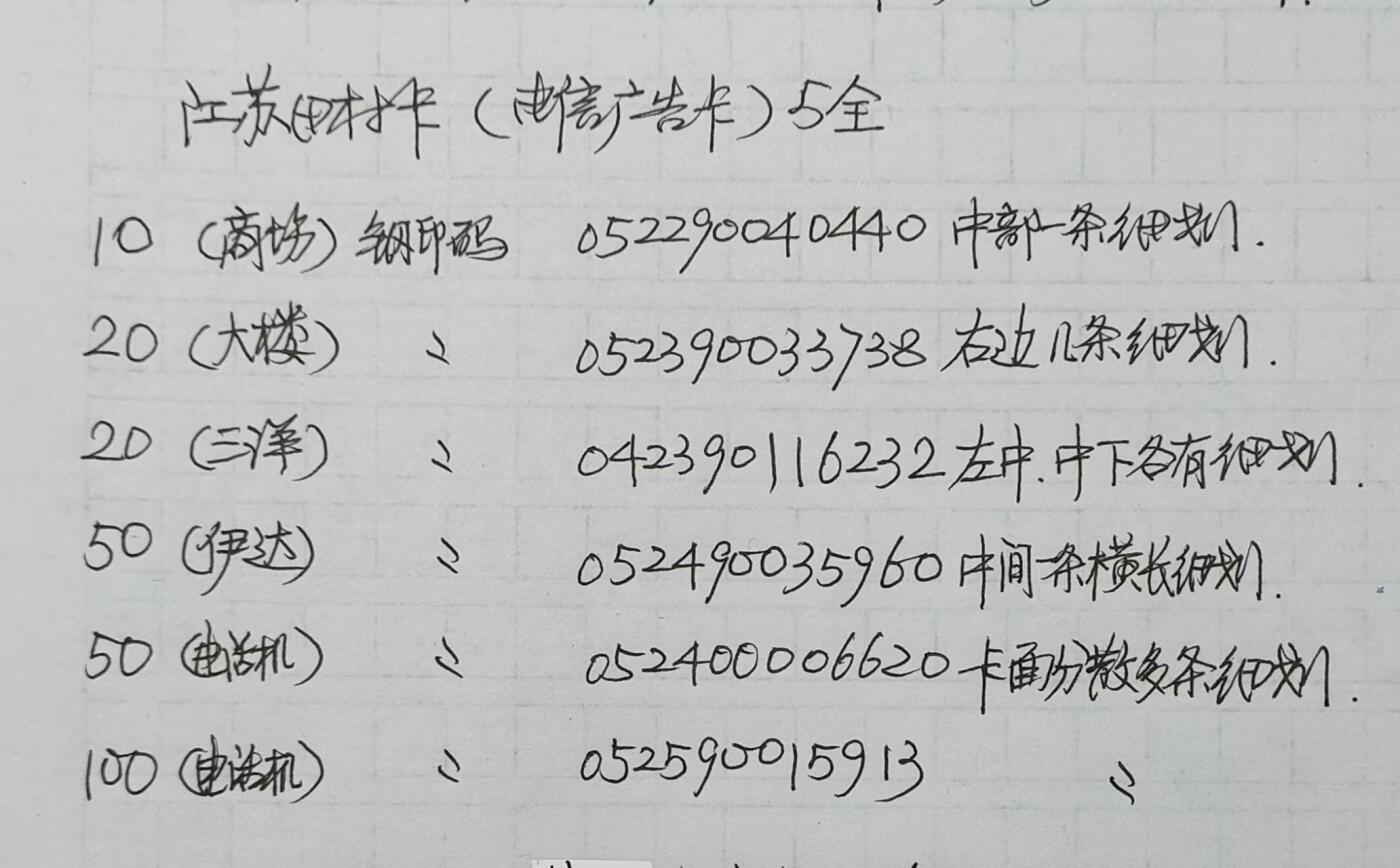 江苏田村卡（电信广告卡）5全
10（商场）钢印码 052290040440 中部一条细划.
20（大楼） 〃 052390033738 右边几条细划.
20（三洋） 〃 042390116232 左中.中下各有细划.
50（伊达） 〃 052490035960 中间一条横长细划.
50（电话机） 〃 052400006620 卡面分散多条细划.
100（电话机） 〃 052590015913 〃